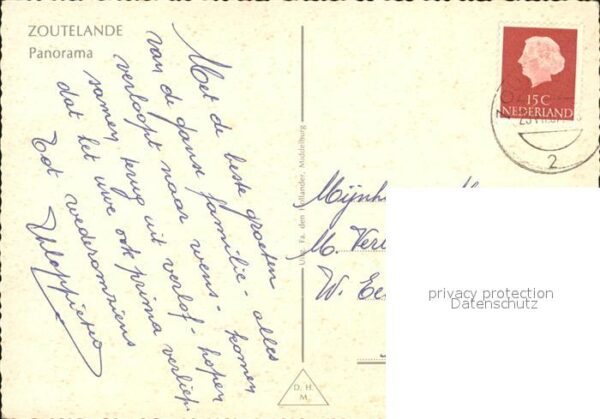 ZOUTELANDE
Panorama
Met de beste groeten
van de ganse familie - alles
verloopt naar wens - komen
samen terug uit verlof - hopen
dat het uwe ook prima verliep
Tot wederomziens
Uitg. Fa. den Hollander, Middelburg
15 C
NEDERLAND
2
Mijnh
M. Ver
W. Ee
privacy protection
Datenschutz
D. H.
M.